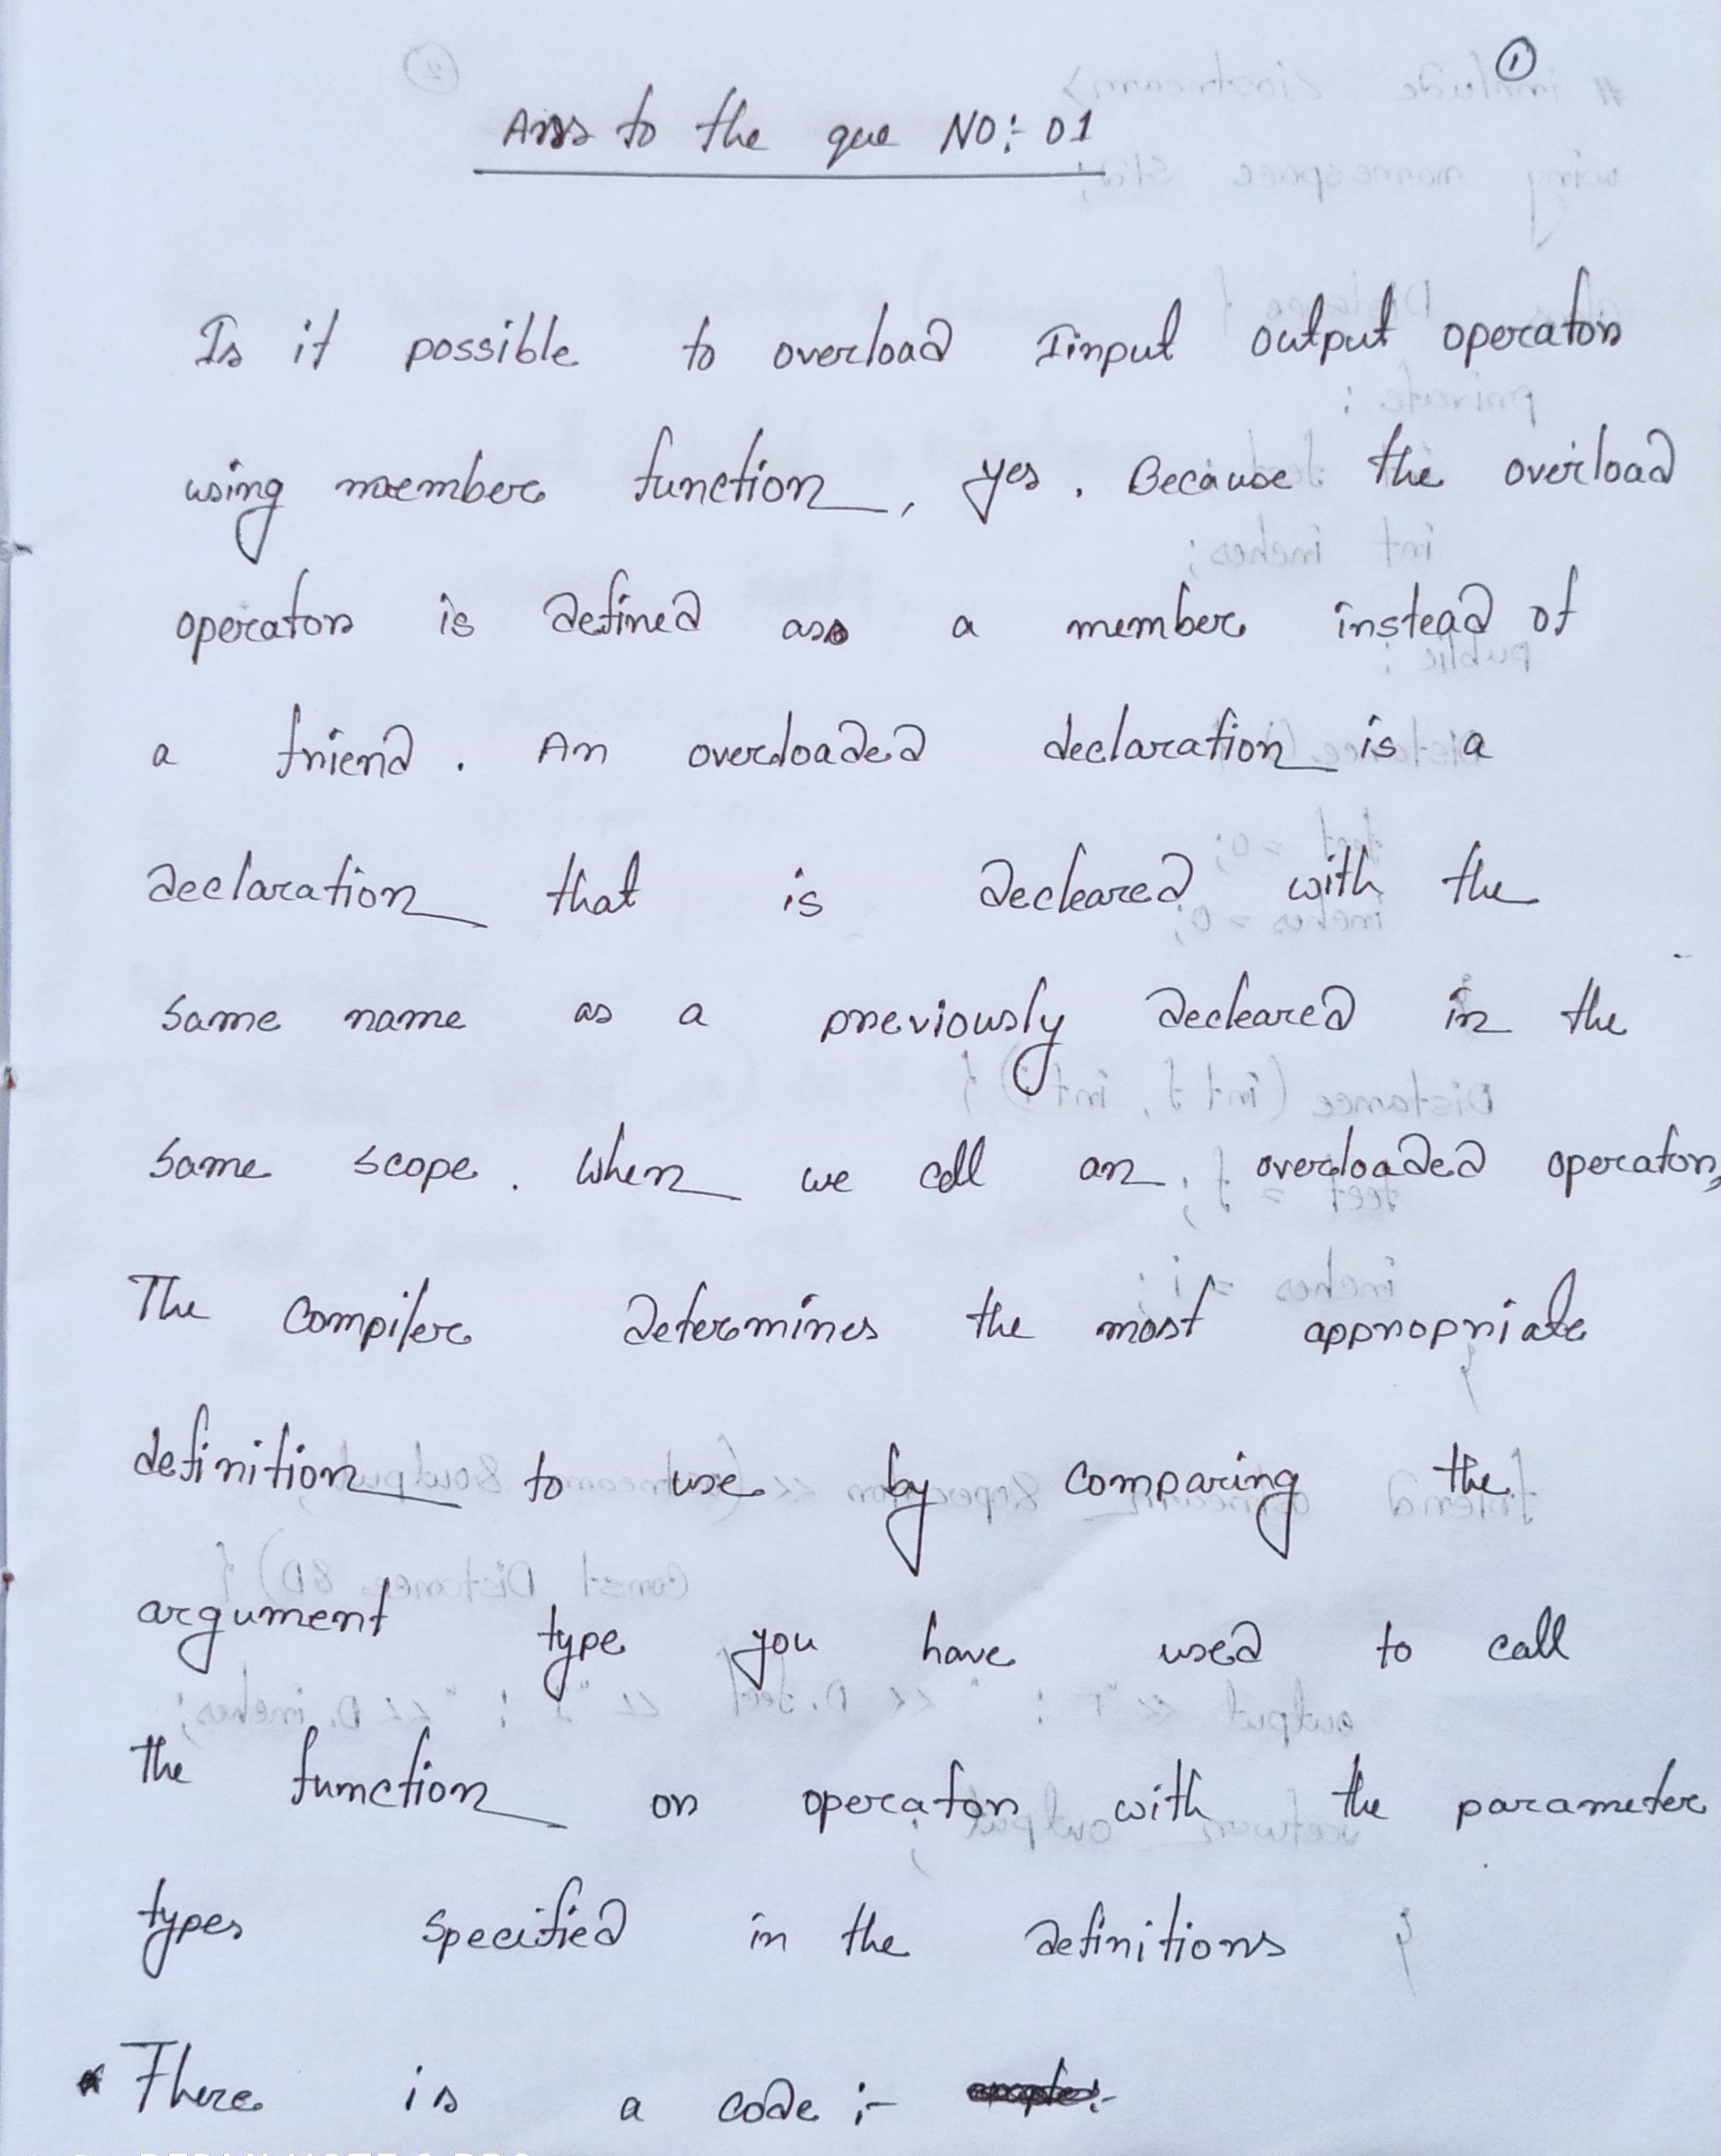 1
Ans to the que NO:- 01
Is it possible to overload Iinput output operator
using member function, yes. Because the overload
operator is defined as a member instead of
a friend. An overloaded declaration is a
declaration that is decleared with the
same name as a previously decleared in the
same scope. When we call an overloaded operator,
The compiler determines the most appropriate
definition to use by comparing the
argument type you have used to call
the function or operator with the parameter
types specified in the definitions
* There is a code :-